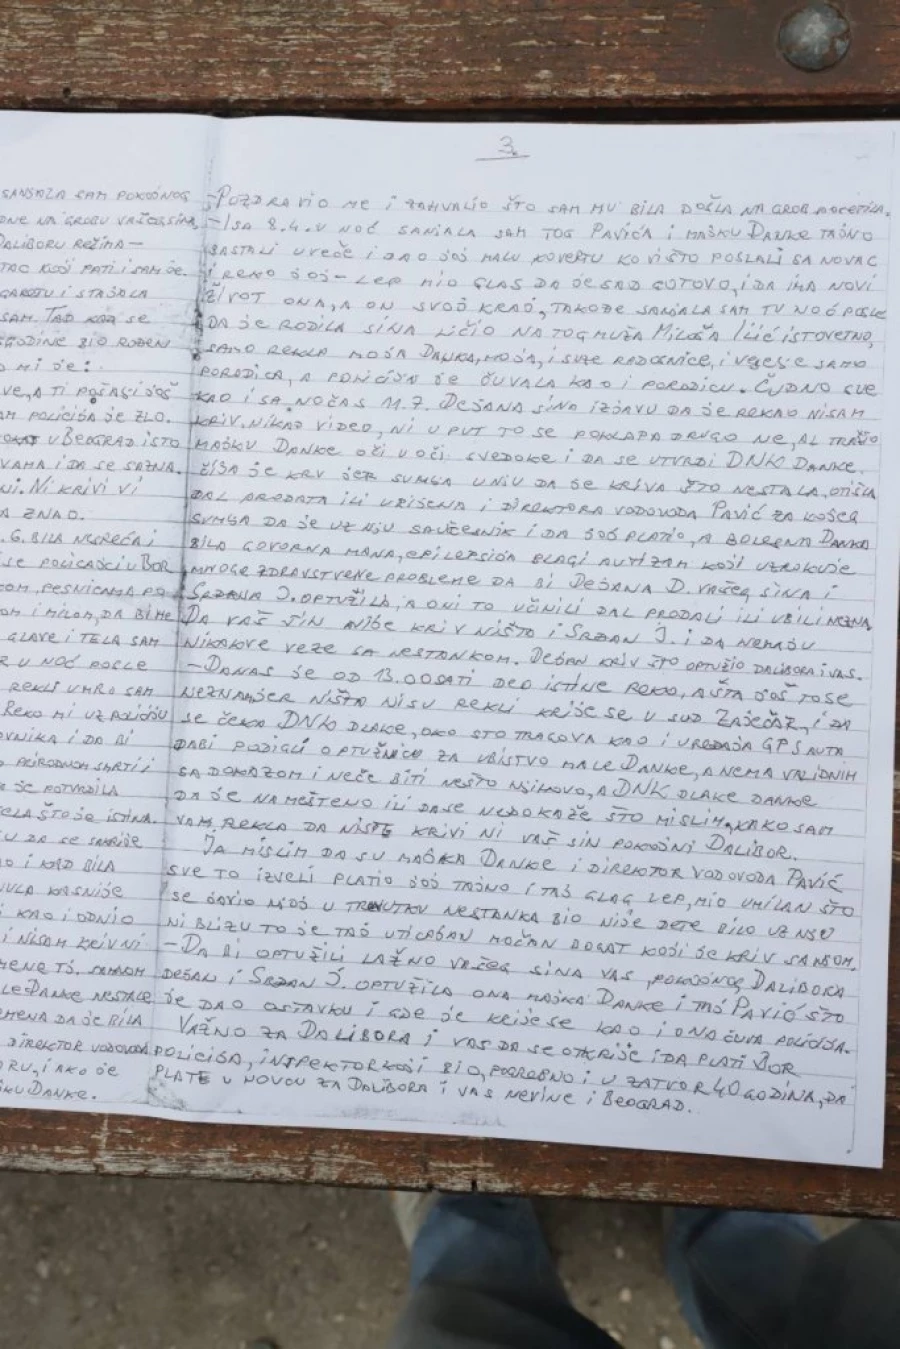 SANJALA SAM POKOJNOG
DNE NA GROBU VAŠEG SINA
DALIBORU REŽIMA-
TAC KOJI PATI I SAM JE.
GAROTU I STAJALA
SAM. TAD KAD SE
GODINE BIO ROĐEN
O MI JE:
VE, A TI POŠALJI JOŠ
AM POLICIJA JE ZLO.
U BEOGRAD ISTO
VAMA I DA SE SAZNA.
NI. NI KRIVI VI
A ZNAO.
. G. BILA NESREĆA I
I SE POLICAJCI U BOR
COM, PESNICAMA PO
OM I MILOM, DA BI ME
GLAVE I TELA SAM
R U NOĆ POSLE
REKLI UMRO SAM
REKO MI UZ POLICIJU
OVNIKA I DA BI
O PRIRODNOM SMRTI I
JE POTVRDILA
ELA ŠTO JE ISTINA.
U DA SE SAKRIJE
O I KAD BILA
NULA KASNIJE
I KAO I ODNIO
I NISAM KRIV NI
MENE TJ. SAMNOM
LE DANKE NESTALE
EMENA DA JE BILA
DIREKTOR VODOVODA
ORU, I AKO JE
JKU DANKE.
3.
-POZDRAVIO ME I ZAHVALIO ŠTO SAM MU BILA DOŠLA NA GROB MOČETINA.
-I SA 8.4. U NOĆ SANJALA SAM TOG PAVIĆA I MAJKU DANKE TAJNO
SASTALI UVEČE I DAO JOJ MALU KOVERTU KO NIŠTO POSLALI SA NOVAC
I REKO JOJ- LEP MIO GLAS DA JE SAD GOTOVO, I DA IMA NOVI
ŽIVOT ONA, A ON SVOJ KRAJ, TAKOĐE SANJALA SAM TU NOĆ POSLE
DA JE RODILA SINA LIČIO NA TOG MUŽA MILOŠA ILIĆ ISTOVETNO,
SAMO REKLA MOJA DANKA, MOJA, I SUZE RADOSNICE, I VESELJE SAMO
PORODICA, A POLICIJA JE ČUVALA KAO I PORODICU. ČUDNO SVE
KAO I SA NOĆAS 11.7. DEJANA SINO IZJAVU DA JE REKAO NISAM
KRIV. NIKAD VIDEO, NI U PUT TO SE POKLAPA DRUGO NE, AL TRAŽIO
MAJKU DANKE OČI U OČI SVEDOKE I DA SE UTVRDI DNK DANKE.
ČIJA JE KRV JER SUMNJA U NJU DA JE KRIVA ŠTO NESTALA, OTIŠLA
DAL PRODATA ILI UBIJENA I DIREKTORA VODOVODA PAVIĆ ZA KOJEG
SUMNJA DA JE UZ NJU SAUČESNIK I DA JOJ PLATIO, A BOLESNA DANKA
BILA GOVORNA MANA, EPILEPSIJA BLAGI AUTIZAM KOJI UZROKUJE
MNOGE ZDRAVSTVENE PROBLEME DA BI DEJANA D. VAŠEG SINA I
SRDJANA J. OPTUŽILA, A ONI TO UČINILI DAL PRODALI ILI UBILI NEZNA.
DA VAŠ SIN NIJE KRIV NIŠTO I SRDJAN J. I DA NEMAJU
NIKAKVE VEZE SA NESTANKOM. DEJAN KRIV ŠTO OPTUŽIO DALIBORA I VAS.
-DANAS JE OD 13.00 SATI DEO ISTINE REKO, A ŠTA JOŠ TO SE
NEZNA JER NIŠTA NISU REKLI KRIJE SE U SUD ZAJEČAR, I DA
SE ČEKA DNK DLAKE, OKO STO TRAGOVA KAO I UREĐAJA GPS AUTA
DA BI PODIGLI OPTUŽNICU ZA UBISTVO MALE DANKE, A NEMA VALIDNIH
SA DOKAZOM I NEĆE BITI NEŠTO NJIHOVO, A DNK DLAKE DANKE
DA JE NAMEŠTENO ILI DA SE NEDOKAŽE ŠTO MISLIM, KAKO SAM
VAM REKLA DA NISTE KRIVI NI VAŠ SIN POKOJNI DALIBOR.
JA MISLIM DA SU MAJKA DANKE I DIREKTOR VODOVODA PAVIĆ
SVE TO IZVELI PLATIO JOJ TAJNO I TAJ GLAG LEP, MIO UMILAN ŠTO
SE JAVIO NJOJ U TRENUTKU NESTANKA BIO NIJE DETE BILO UZ NJU
NI BLIZU TO JE TAJ UTICAJAN MOĆAN BOGAT KOJI JE KRIV SANJOM.
-DA BI OPTUŽILI LAŽNO VAŠEG SINA VAS, POKOJNOG DALIBORA
DEJAN I SRDJAN J. OPTUŽILA ONA MAJKA DANKE I TAJ PAVIĆ ŠTO
JE DAO OSTAVKU I GDE JE KRIJE SE KAO I ONA ČUVA POLICIJA.
VAŽNO ZA DALIBORA I VAS DA SE OTKRIJE I DA PLATI BOR
POLICIJA, INSPEKTOR KOJI BIO, POGREBNO I U ZATVOR 40 GODINA, DA
PLATE U NOVCU ZA DALIBORA I VAS NEVINE I BEOGRAD.